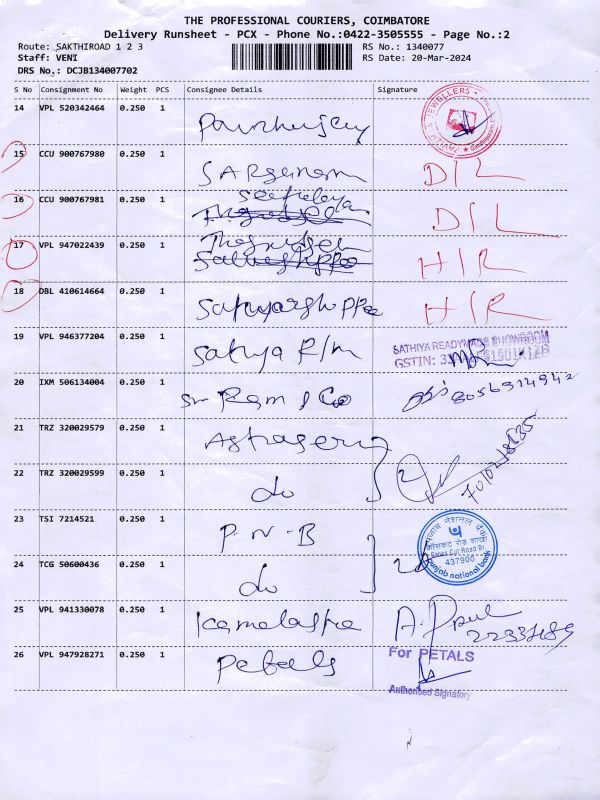 THE PROFESSIONAL COURIERS, COIMBATORE
Delivery Runsheet - PCX - Phone No.:0422-3505555 - Page No.:2
Route: SAKTHIROAD 1 2 3
RS No.: 1340077
Staff: VENI
RS Date: 20-Mar-2024
DRS No.: DCJB134007702
S No Consignment No Weight PCS Consignee Details Signature
14 VPL 520342464 0.250 1
JEWELLERS
15 CCU 900767980 0.250 1
D/L
16 CCU 900767981 0.250 1
D/L
17 VPL 947022439 0.250 1
H/R
18 DBL 410614664 0.250 1
H/R
19 VPL 946377204 0.250 1 Sathya R/m
SATHIYA READYMADE SHOWROOM
GSTIN: 33
20 IXM 506134004 0.250 1 Sri Ram & Co
8056914942
21 TRZ 320029579 0.250 1
22 TRZ 320029599 0.250 1 do
23 TSI 7214521 0.250 1 P-N-B
पंजाब नैशनल बैंक
437900
punjab national bank
24 TCG 50600436 0.250 1 do
25 VPL 941330078 0.250 1
A. Paul
26 VPL 947928271 0.250 1 Petals
For PETALS
Authorised Signatory